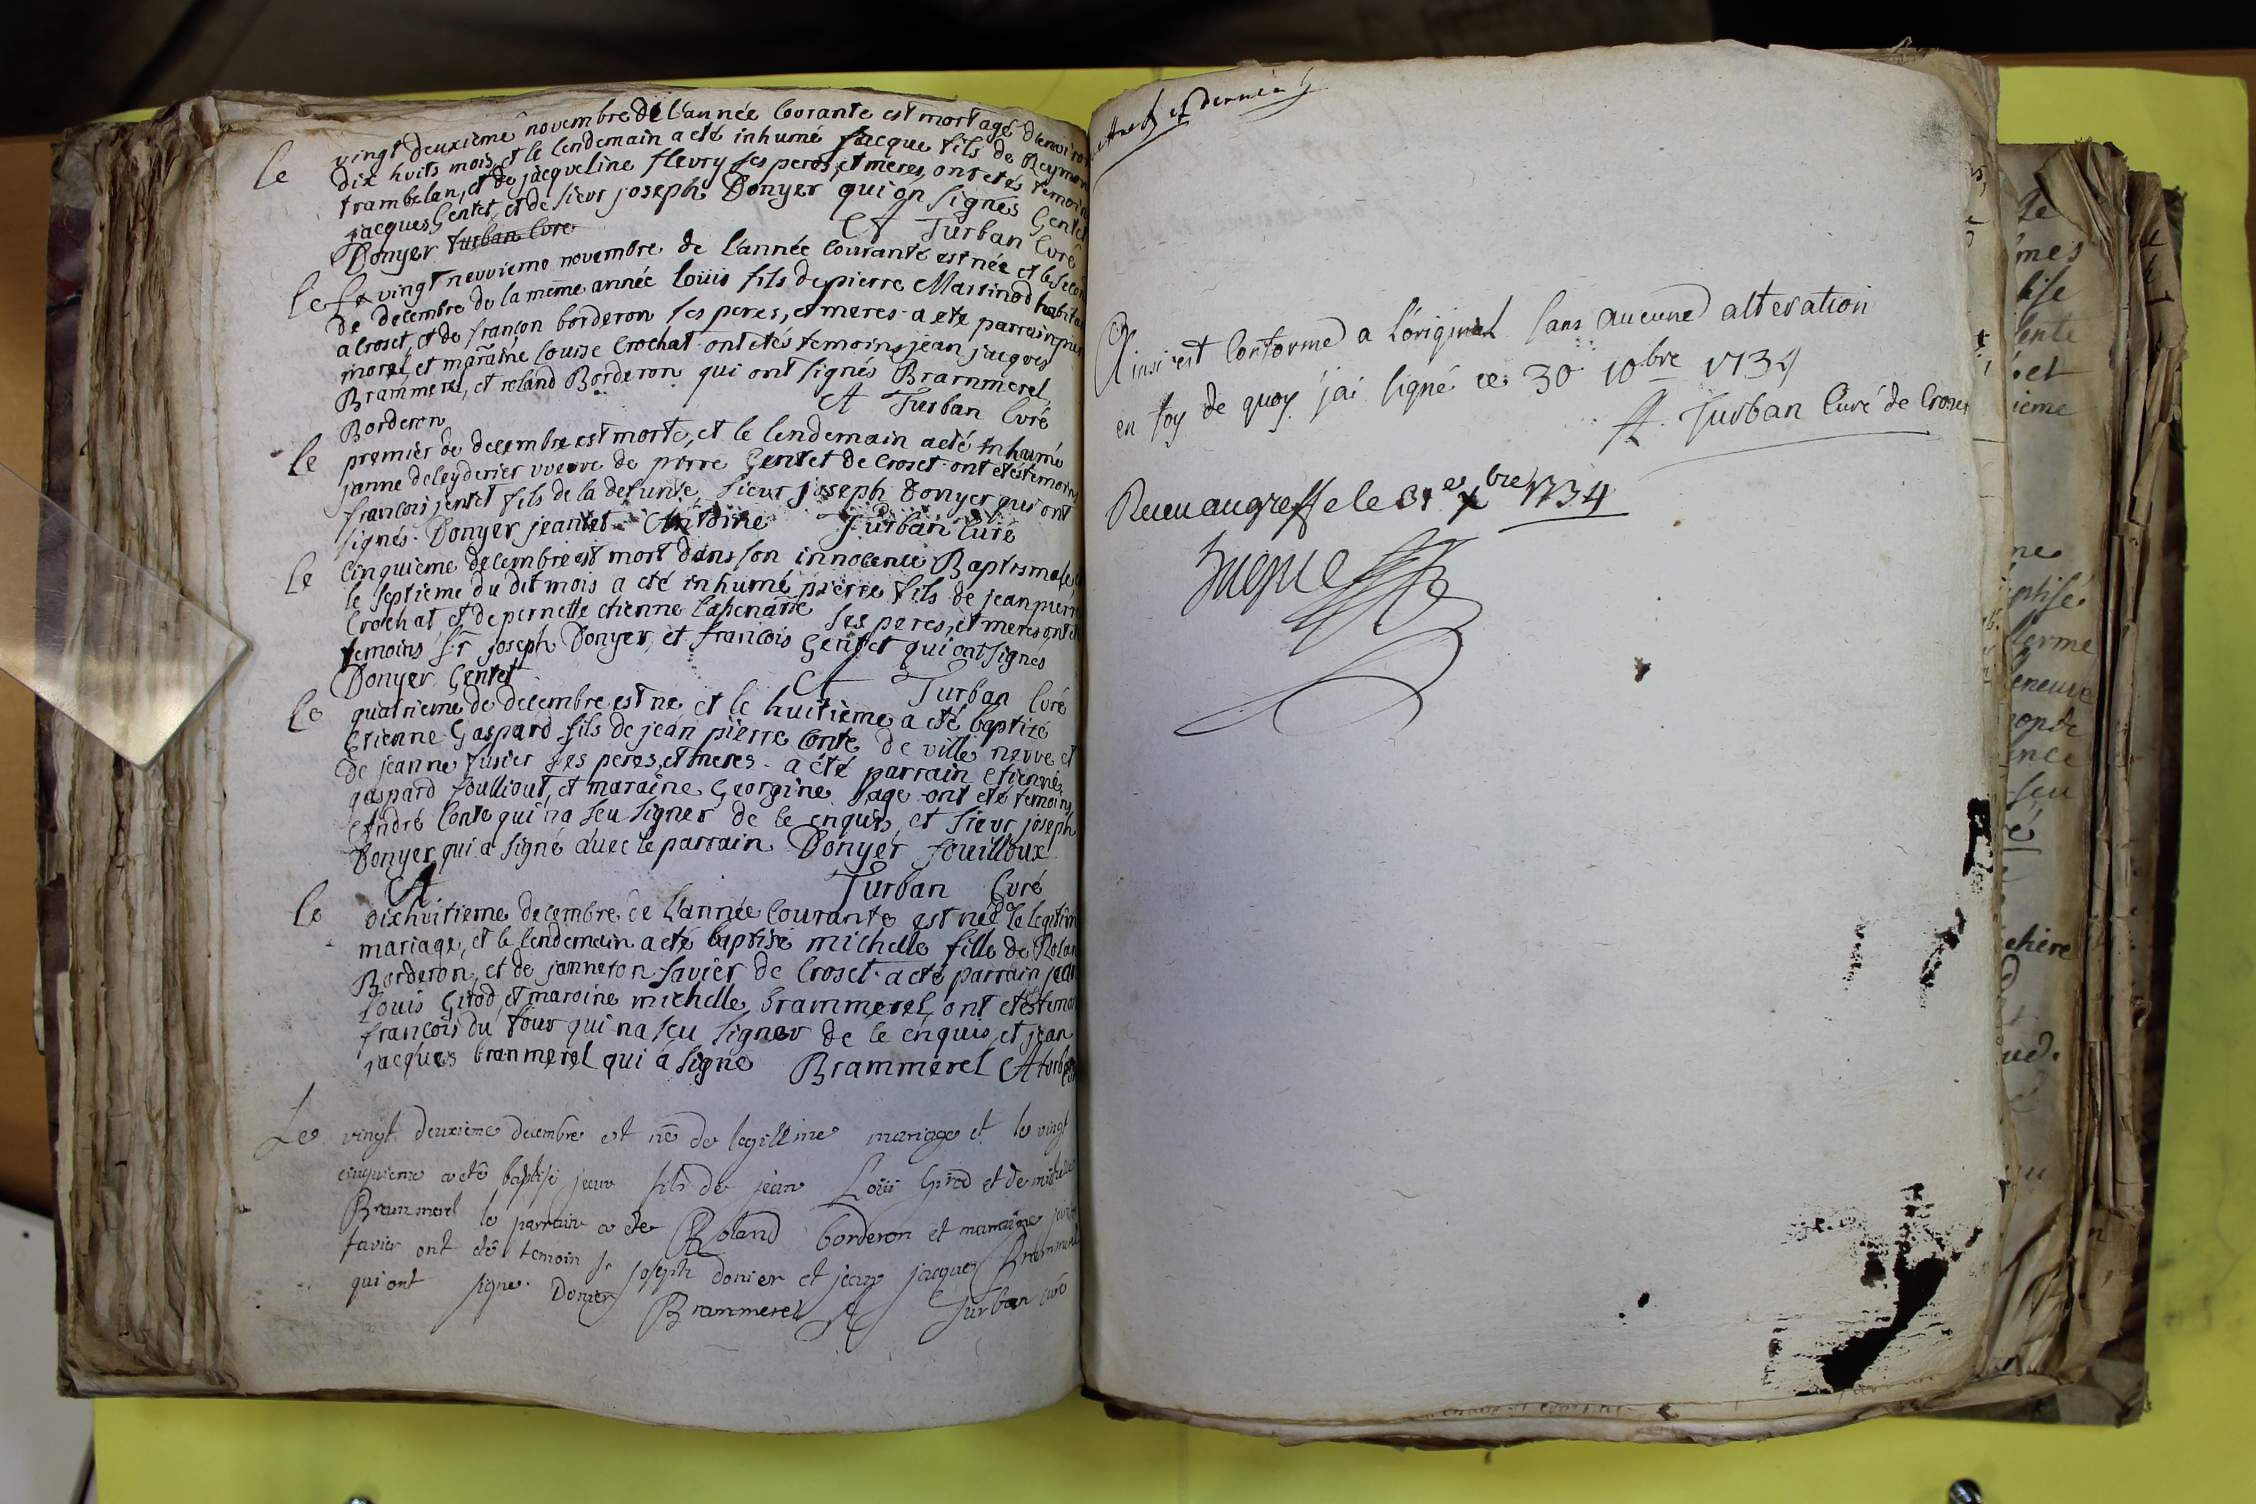 le vingt deuxieme novembre de l'année Courante est mort agé denviron
dix huits mois, et le lendemain a eté inhumé Jacque fils de Reymon
trambelan, et de jacqueline fleury ses peres, et meres, ont etés temoins
jacques Gentet, et de sieur joseph Donyer qui on signés Gentet
Donyer turban Cure A Turban Curé
le Le vingt neuvieme novembre de l'année Courante est née et le secon
de decembre de la meme année loüis fils de pierre Martinod habitan
a Croset, et de françon borderon ses peres, et meres a ete parrain
morel, et maraine Louise Crochat ont etés temoins jean jacques
Brammerel, et roland Borderon qui ont signés Brammerel
Borderon A Turban Curé
le premier de decembre est morte, et le lendemain a eté inhumé
janne deleyderier veuve de pierre Gentet de Croset ont etés temoins
francois jentet fils de la defunte, sieur joseph Donyer qui ont
signés Donyer jeantet Antoine Turban Curé
le cinquieme decembre est mort dans son innocence Baptismale
le septieme du dit mois a eté inhumé pierre fils de jean pierre
Crochat, et de pernette etienne ses peres, et meres ont
temoins sr joseph Donyer, et francois Gentet qui ont signés
Donyer Gentet A Turban Curé
le quatrieme de decembre est ne et le huitieme a eté baptizé
Etienne Gaspard fils de jean piërre Conte de ville neuve et
de jeanne fusier ses peres, et meres a été parrain etienne
gaspard foulliout, et maraine Georgine page ont eté temoins
André Conte qui na seu signer de ce enquis, et sieur joseph
Donyer qui a signé avec le parrain Donyer fouilloux
A Turban Curé
le dixhuitieme decembre de l'année Courante est née de legitim
mariage, et le lendemain a eté baptisé michelle fille de Rolan
Borderon, et de janneton favier de Croset a eté parrain jean
Louis Girod, et maroine michelle brammerel, ont etés temoi
françois du four qui na seu signer de ce enquis, et jean
jacques branmerel qui a signe Brammerel A turban
Le vingt deuxieme decembre est né de legittime mariage et le vingt
cinquieme a eté baptisé jean fils de jean Loüis Girod et de michelle
Brammerel le parrain a ete Roland borderon et maraine
favier ont eté temoin sr joseph donier et jean jacques Brammerel
qui ont signe Donier Brammerel A Turban curé
et dernier
Ainsi est Conforme a l'original sans aucune alteration
en foy de quoy j'ai signé ce 30 10bre 1734
A. Turban Curé de Croset
Receu au greffe le 31e xbre 1734